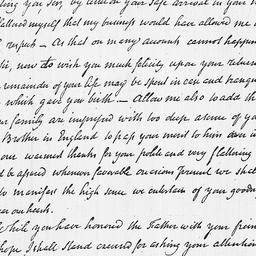 you Sir, by letter on your safe arrival in your
flattered myself that my business would have allowed me
respect — As that on many accounts cannot happen
, now to wish you much felicity upon your return
remainder of your life may be spent in ease and tranqu
which gave you birth — Allow me also to add th
family are impressed with too deep a sense of y
Brother in England to pass your merit to him over in
our warmest thanks for your polite and very flattering
be assured whenever favorable occasions present we sha
to manifest the high sense we entertain of your goodn
our hearts.
While you have honored the Father with your frien
hope I shall stand excused for asking your attention